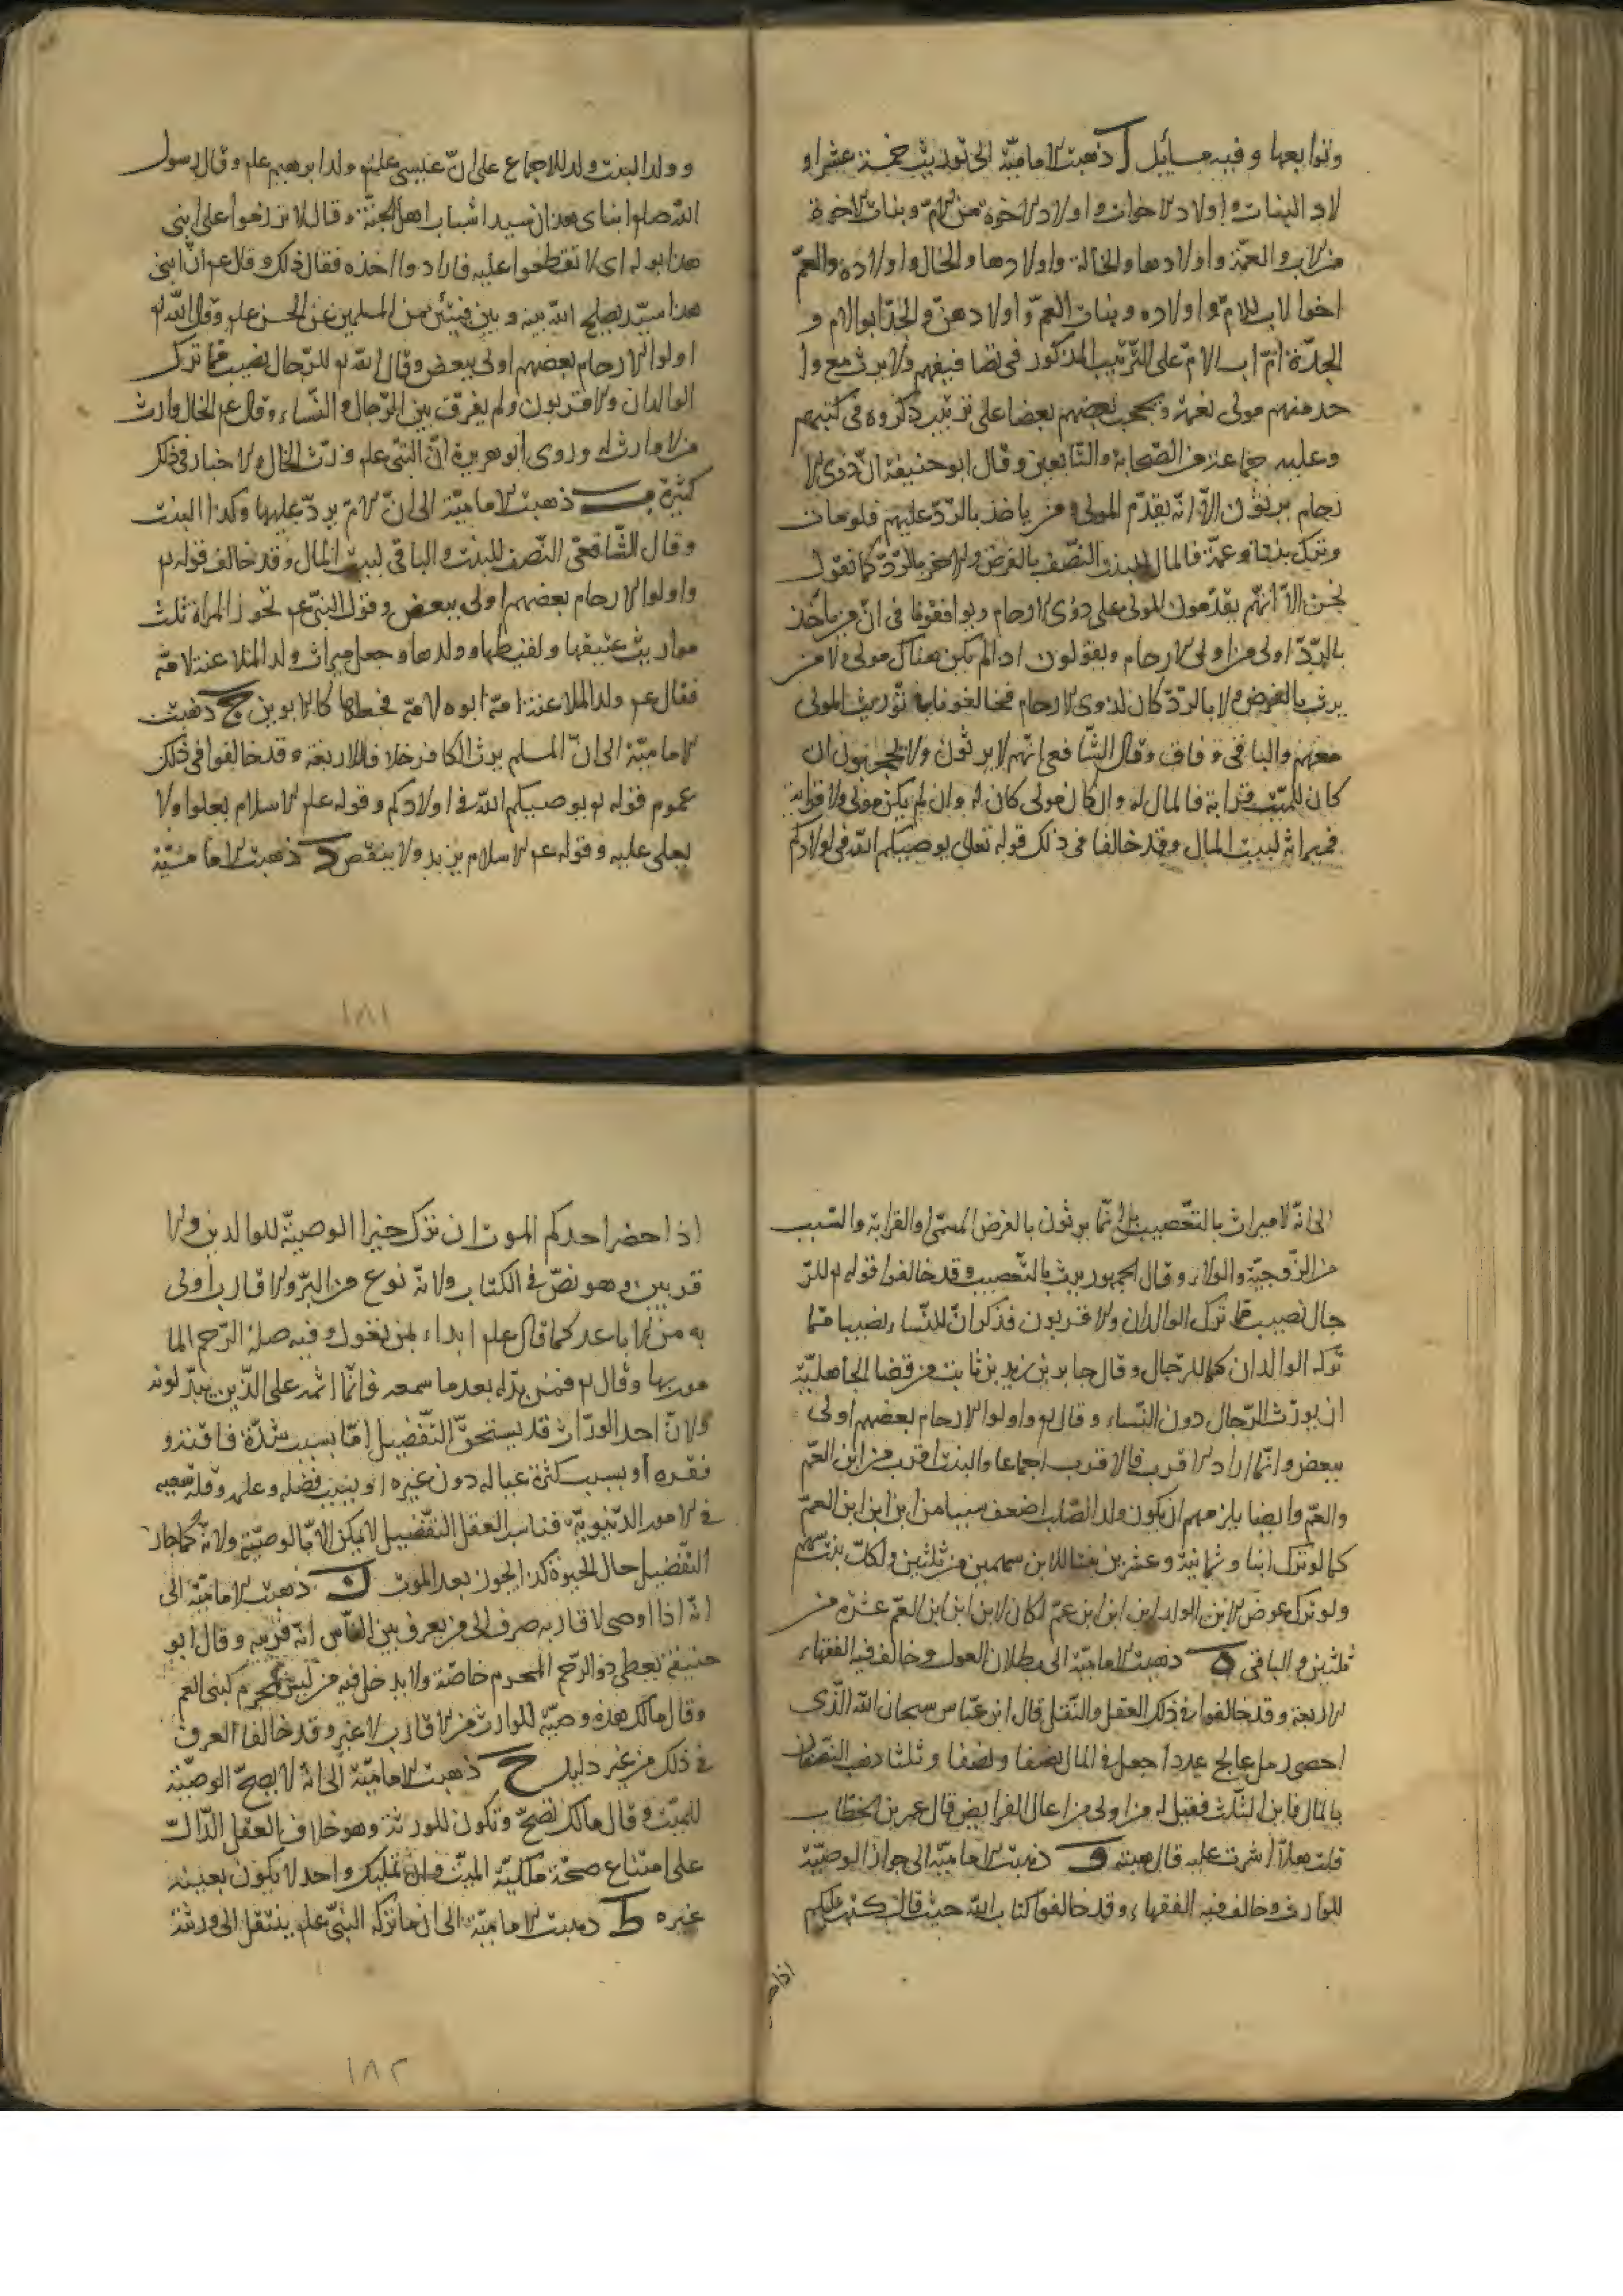 وتوابعها وفيه مسائل ا ذهبت الامامية الى توريث خمسة عشر او
لاد البنات واولاد الاخوات واولاد الاخوة من الام وبنات الاخوة
من الاب والعمة واولادها والخالة واولادها والخال واولاده والعم
اخو الاب للام واولاده وبنات العم واولادهن والجد ابو الام و
الجدة ام اب الام على الترتيب المذكور في تصانيفهم ولا يرث مع وا
حد منهم مولى نعمة ويحجب بعضهم بعضا على ترتيب ذكروه في كتبهم
وعليه جماعة من الصحابة والتابعين وقال ابو حنيفة ان ذوي الا
رحام يرثون الا انه يقدم المولى ومن ياخذ بالرد عليهم فلو مات
وترك بنتا وعمة فالمال للبنت النصف بالفرض والاخر بالرد كما نقول
نحن الا انهم يقدمون المولى على ذوي الارحام ويوافقونا في ان من ياخذ
بالرد اولى من اولي الارحام ويقولون اذا لم يكن هناك مولى ولا من
يرث بالفرض ولا بالرد كان لذوي الارحام فخالفونا في توريث المولى
معهم والباقي وفاق وقال الشافعي انهم لا يرثون ولا يحجبون ان
كان للميت قرابة فالمال له وان كان مولى كان له وان لم يكن مولى ولا قرابة
فميراثه لبيت المال وقد خالفا في ذلك قوله تعالى يوصيكم الله في اولادكم
و ولد البنت ولد للاجماع على ان عيسى علم ولد ابرهيم علم وقال رسول
الله صلم ابناي هذان سيدا شباب اهل الجنة وقال لا تزرموا على ابني
هذا بوله اي لا تقطعوا عليه فارادوا اخذه فقال ذلك وقال عم ان ابني
هذا سيد يصلح الله به وبين فئتين من المسلمين عن الحسن علم وقال الله تع
اولوا الارحام بعضهم اولى ببعض وقال الله تع للرجال نصيب مما ترك
الوالدان والاقربون ولم يفرق بين الرجال والنساء وقال عم الخال وارث
من لا وارث له وروى ابو هريرة ان النبي علم ورث الخال والاخبار في ذلك
كثيرة ب ذهبت الامامية الى ان الام يرد عليها وكذا البنت
وقال الشافعي النصف للبنت والباقي لبيت المال وقد خالف قوله تع
واولوا الارحام بعضهم اولى ببعض وقول النبي عم تحوز المراة ثلث
مواريث عتيقها ولقيطها وولدها وجعل ميراث ولد الملاعنة لامه
فقال عم ولد الملاعنة امه ابوه لامه فجعلها كالابوين ج ذهبت
الامامية الى ان المسلم يرث الكافر خلافا للاربعة وقد خالفوا في ذلك
عموم قوله تع يوصيكم الله في اولادكم وقوله علم الاسلام يعلوا ولا
يعلى عليه وقوله عم الاسلام يزيد ولا ينقص د ذهبت الامامية
١٨١
الى انه لا ميراث بالتعصيب بل انما يرثون بالفرض المسمى او القرابة والسبب
من الزوجية والولاء وقال الجمهور يرث بالتعصيب وقد خالفوا قوله تع للر
جال نصيب مما ترك الوالدان والاقربون فذكر ان للنساء نصيبا مما
تركه الوالدان كما للرجال وقال جابر بن زيد بن ثابت من قضا الجاهلية
ان يورث الرجال دون النساء وقال تع واولوا الارحام بعضهم اولى
ببعض وانما اراد الاقرب فالاقرب اجماعا والبنت اقرب من ابن العم
والعم وايضا يلزمهم ان يكون ولد الصلب اضعف سببا من ابن ابن ابن العم
كما لو ترك ابنا وثمانية وعشرين بنتا للابن سهمين من ثلثين ولكل بنت سهم
ولو ترك عوض الابن الولد ابن ابن ابن عم لكان لابن ابن ابن العم عشرة من
ثلثين والباقي ه ذهبت الامامية الى بطلان العول وخالف فيه الفقهاء
الاربعة وقد خالفوا في ذلك العقل والنقل قال ابن عباس سبحان الله الذي
احصى رمل عالج عددا جعل في المال نصفا ونصفا وثلثا ذهب النصفان
بالمال فاين الثلث فقيل له من اولى من اعال الفرايض قال عمر بن الخطاب
قلت هلا اشرت عليه قال هبته و ذهبت الامامية الى جواز الوصية
للوارث وخالف فيه الفقهاء وقد خالفوا كتاب الله حيث قال كتب عليكم
اذا حضر
اذا حضر احدكم الموت ان ترك خيرا الوصية للوالدين والا
قربين وهو نص في الكتاب ولانه نوع من البر والاقارب اولى
به من الاباعد كما قال علم ابداء بمن تعول وفيه صلة الرحم الما
مور بها وقال تع فمن بدله بعدما سمعه فانما اثمه على الذين يبدلونه
ولان احد الوراث قد يستحق التفضيل اما بسبب شدة فاقته و
فقره او بسبب كثرة عياله دون غيره او بسبب فضله وعلمه وقلة سعيه
في الامور الدنيوية فناسب العقل التفضيل لا يمكن الا بالوصية ولانه كما جاز
التفضيل حال الحيوة كذا يجوز بعد الموت ز ذهبت الامامية الى
انه اذا اوصى لاقاربه صرف الى من يعرف بين الناس انه قريبه وقال ابو
حنيفة يعطى ذو الرحم المحرم خاصة ولا يدخل فيه من ليس بمحرم كبني العم
وقال مالك هذه وصية للوارث من الاقارب لا غير وقد خالفا العرف
في ذلك من غير دليل ح ذهبت الامامية الى انه لا يصح الوصية
للميت وقال مالك تصح وتكون للورثة وهو خلاف العقل الدال
على امتناع صحة ملكية الميت وان تمليك واحد لا يكون بعينه
غيره ط ذهبت الامامية الى ان ما تركه النبي علم ينتقل الى ورثته
١٨٢